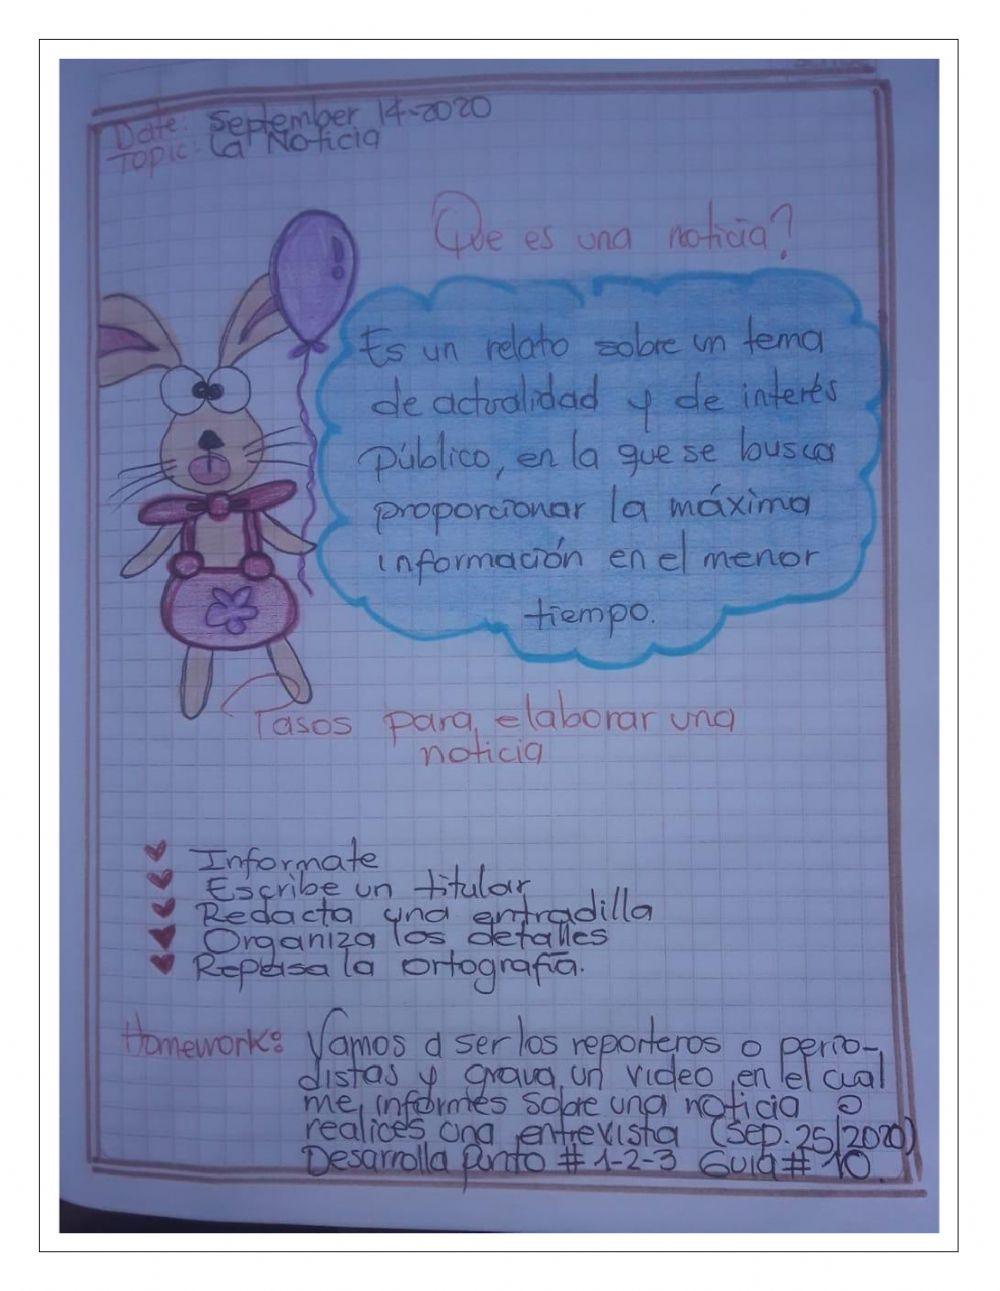 Date: September 14-2020
Topic: La Noticia
Que es una noticia?
Es un relato sobre un tema
de actualidad y de interés
público, en la que se busca
proporcionar la máxima
información en el menor
tiempo.
Pasos para elaborar una
noticia
Informate
Escribe un titular
Redacta una entradilla
Organiza los detalles
Repasa la ortografía.
Homework: Vamos a ser los reporteros o perio-
distas y grava un video en el cual
me informes sobre una noticia o
realices una entrevista (Sep. 25/2020)
Desarrolla punto # 1-2-3 Guia # 10.